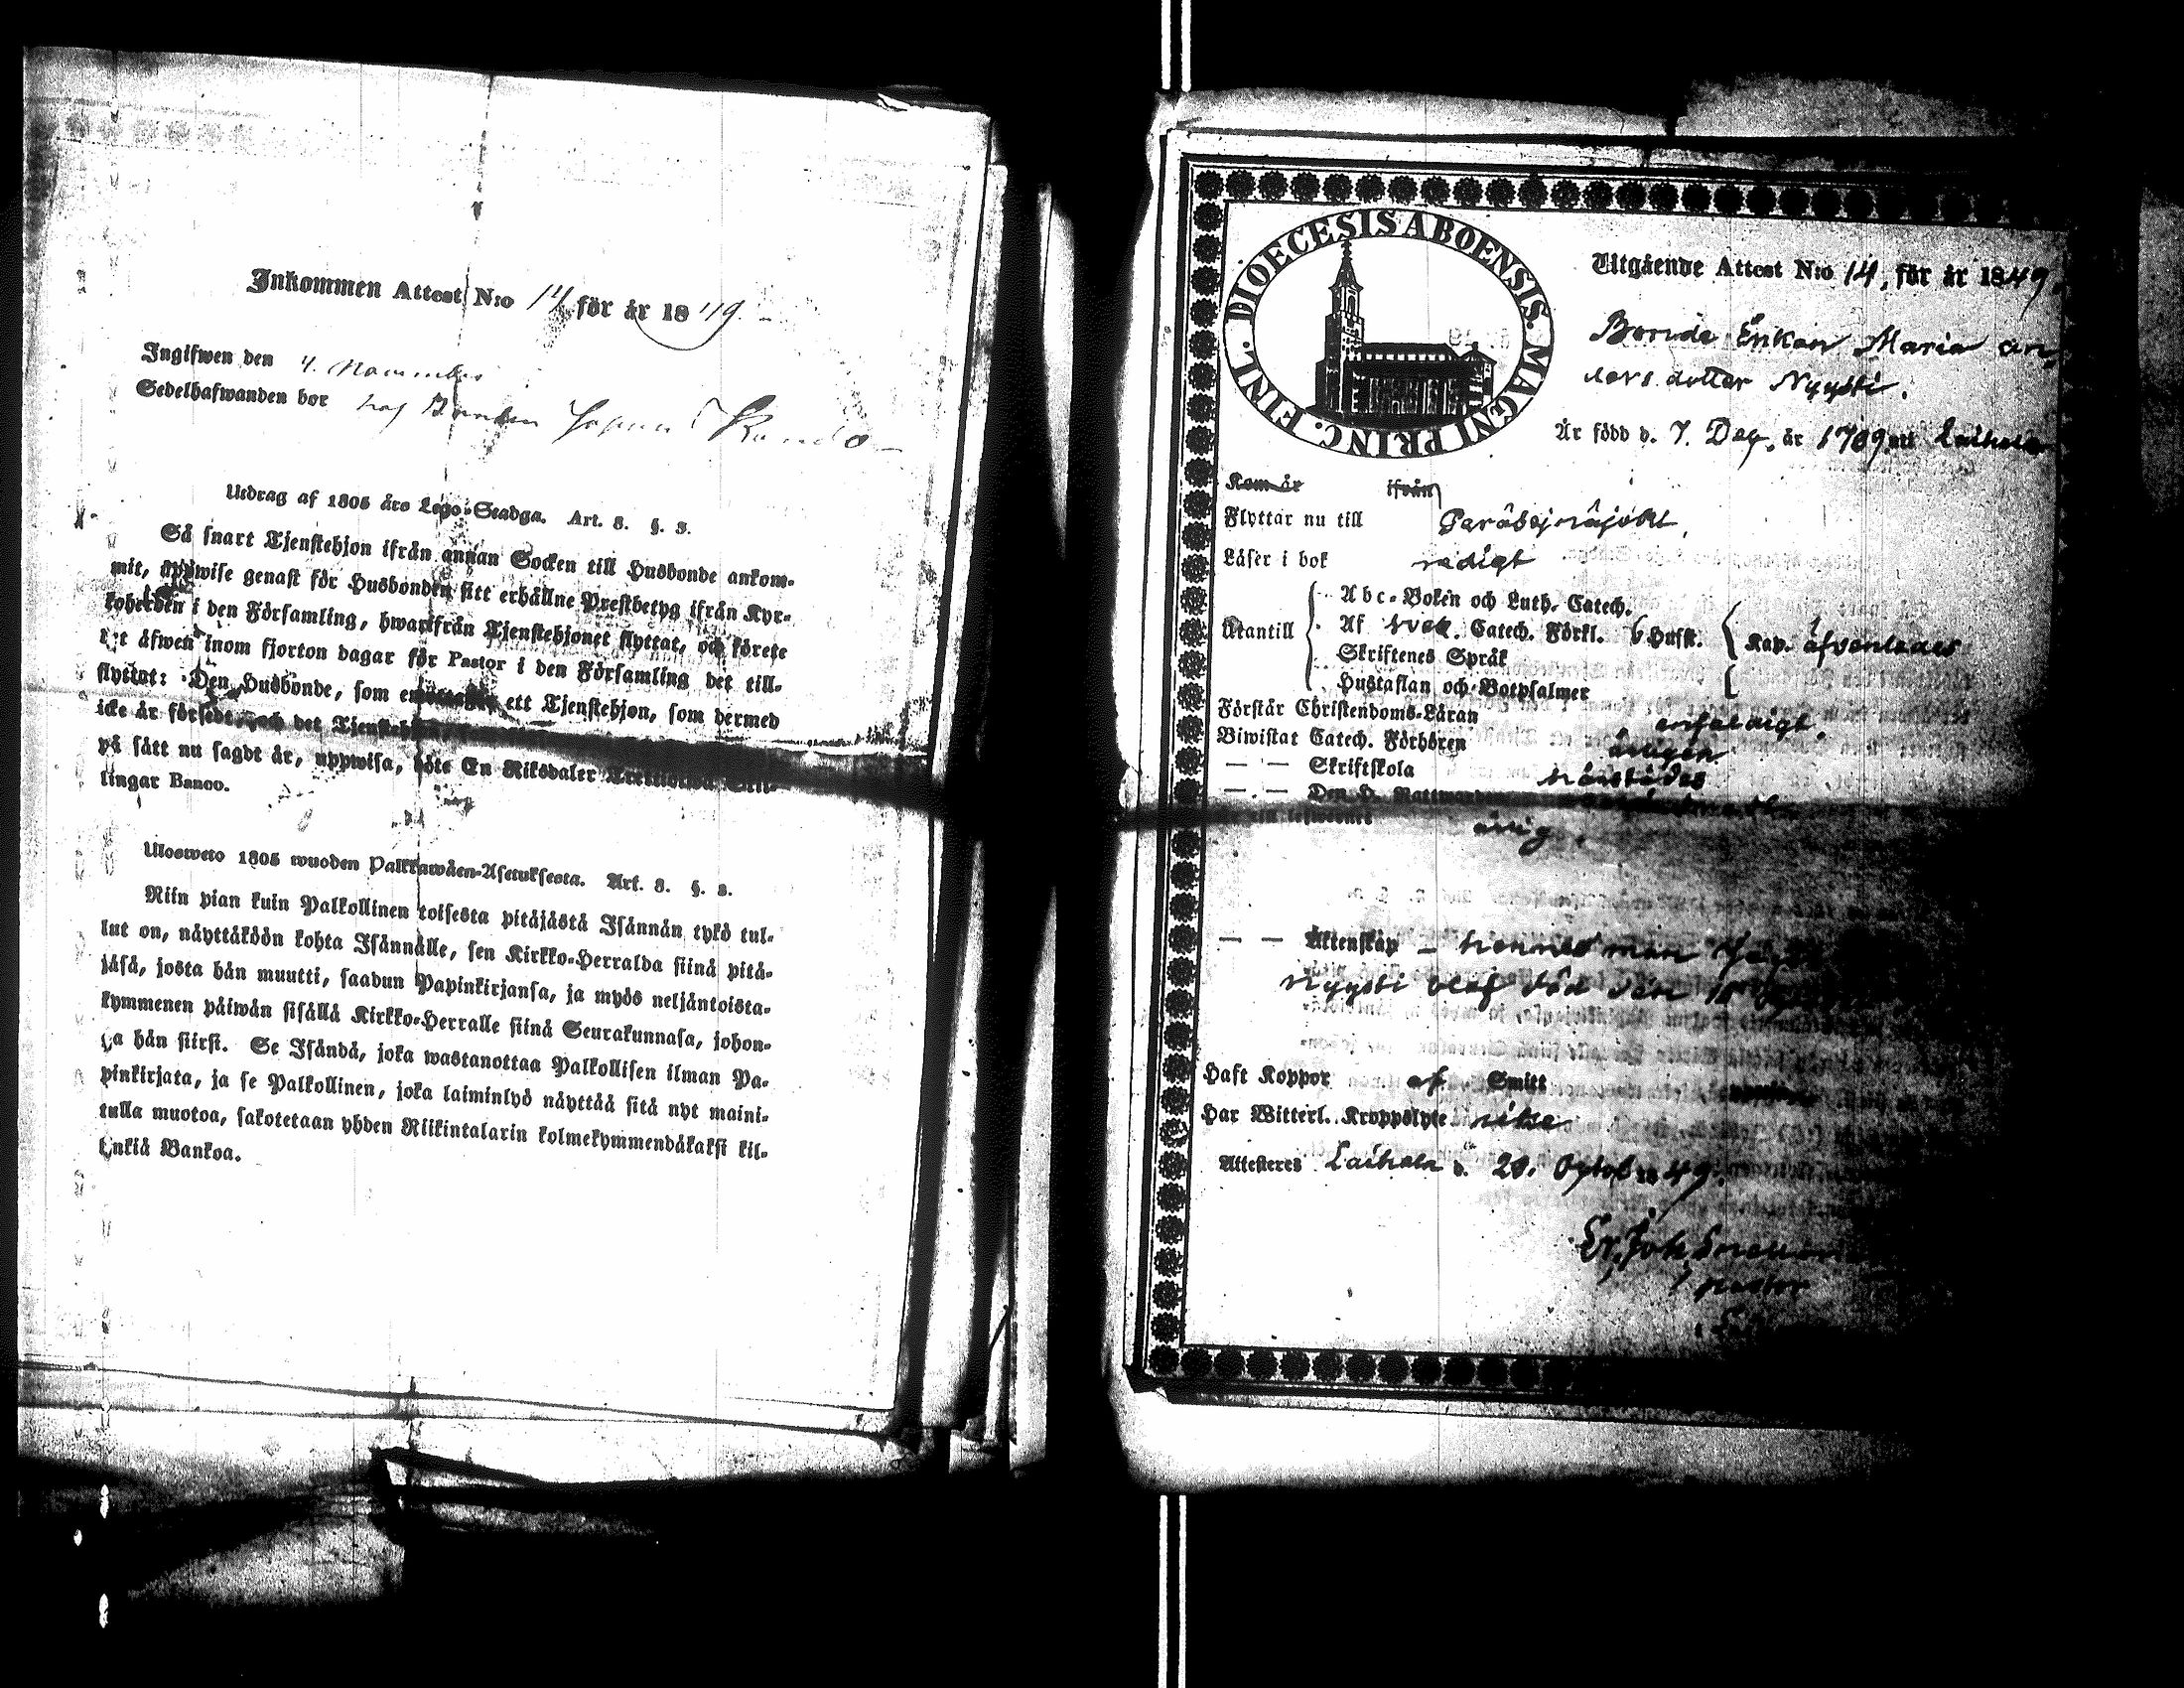 Inkommen Attest N:o 14 för år 1849.
Ingifwen den 4. November
Sedelhafwanden bor hos Bonden
Utdrag af 1805 års Lego-Stadga. Art. 8. §. 3.
Så snart Tjenstehjon ifrån annan Socken till Husbonde ankom-
mit, uppwise genast för Husbonden sitt erhållne Prestbetyg ifrån Kyr-
koherden i den Församling, hwarifrån Tjenstehjonet flyttat, och förete
det äfwen inom fjorton dagar för Pastor i den Församling det till-
flyttat: Den Husbonde, som emottager ett Tjenstehjon, som dermed
icke är försedt, och det
på sätt nu sagdt är, uppwisa, böte En Riksdaler Trettiotwå Skil-
lingar Banco.
Ulosweto 1805 wuoden Palkkawäen-Asetuksesta. Art. 8. §. 3.
Niin pian kuin Palkollinen toisesta pitäjästä Isännän tykö tul-
lut on, näyttäköön kohta Isännälle, sen Kirkko-Herralda siinä pitä-
jäsä, josta hän muutti, saadun Papinkirjansa, ja myös neljäntoista-
kymmenen päiwän sisällä Kirkko-Herralle siinä Seurakunnasa, johon-
ga hän siirsi. Se Isändä, joka wastanottaa Palkollisen ilman Pa-
pinkirjata, ja se Palkollinen, joka laiminlyö näyttää sitä nyt maini-
tulla muotoa, sakotetaan yhden Riikintalarin kolmekymmendäkaksi kil-
lingiä Bankoa.
DIOECESIS ABOENSIS. MAGNI PRINC. FINL.
Utgående Attest N:o 14, för år 1849.
Bonde Enkan Maria an
ders dotter Nyysti.
Är född d. 7. Dec. år 1789 uti Laihela
Kom år ifrån
Flyttar nu till
Läser i bok redigt
Utantill
Abc-Boken och Luth. Catech.
Af Sveb. Catech. Förkl. 6 Husst. Kap. äfvenledes
Skriftenes Språk
Hustaflan och Botpsalmer
Förstår Christendoms-Läran enfaldigt.
Biwistat Catech. Förhören årligen
— — Skriftskola härstädes
— — Den H. Nattwarden
ärlig.
— — Äktenskap – hennes man
Nyysti Olof död den 18
Haft Koppor af Smitt
Har Witterl. Kroppslyte icke
Attesteres Laihela d. 20. Octob 1849.
Er. Joh.
pastor